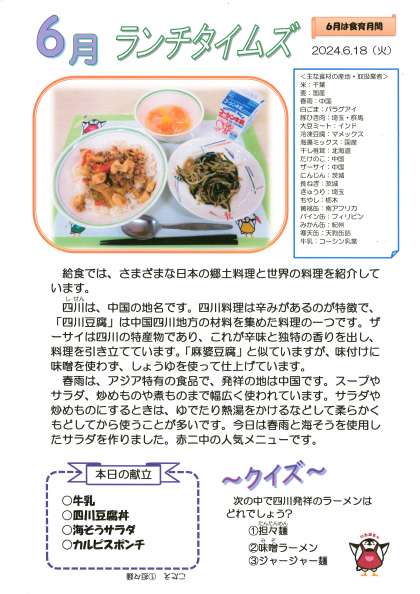 6月 ランチタイムズ
6月は食育月間
2024.6.18（火）
＜主な食材の産地・取扱業者＞
米：千葉
麦：国産
春雨：中国
白ごま：パラグアイ
豚ひき肉：埼玉・群馬
大豆ミート：インド
冷凍豆腐：マメックス
海藻ミックス：国産
干し椎茸：北海道
たけのこ：中国
ザーサイ：中国
にんじん：茨城
長ねぎ：茨城
きゅうり：埼玉
もやし：栃木
黄桃缶：南アフリカ
パイン缶：フィリピン
みかん缶：紀州
寒天缶：天狗缶詰
牛乳：コーシン乳業
給食では、さまざまな日本の郷土料理と世界の料理を紹介して
います。
しせん
四川は、中国の地名です。四川料理は辛みがあるのが特徴で、
「四川豆腐」は中国四川地方の材料を集めた料理の一つです。ザ
ーサイは四川の特産物であり、これが辛味と独特の香りを出し、
料理を引き立てています。「麻婆豆腐」と似ていますが、味付けに
味噌を使わず、しょうゆを使って仕上げています。
春雨は、アジア特有の食品で、発祥の地は中国です。スープや
サラダ、炒めものや煮ものまで幅広く使われています。サラダや
炒めものにするときは、ゆでたり熱湯をかけるなどして柔らかく
もどしてから使うことが多いです。今日は春雨と海そうを使用し
たサラダを作りました。赤二中の人気メニューです。
本日の献立
○牛乳
○四川豆腐丼
○海そうサラダ
○カルピスポンチ
～クイズ～
次の中で四川発祥のラーメンは
どれでしょう？
たんたんめん
①担々麺
みそ
②味噌ラーメン
③ジャージャー麺
こたえ ①担々麺